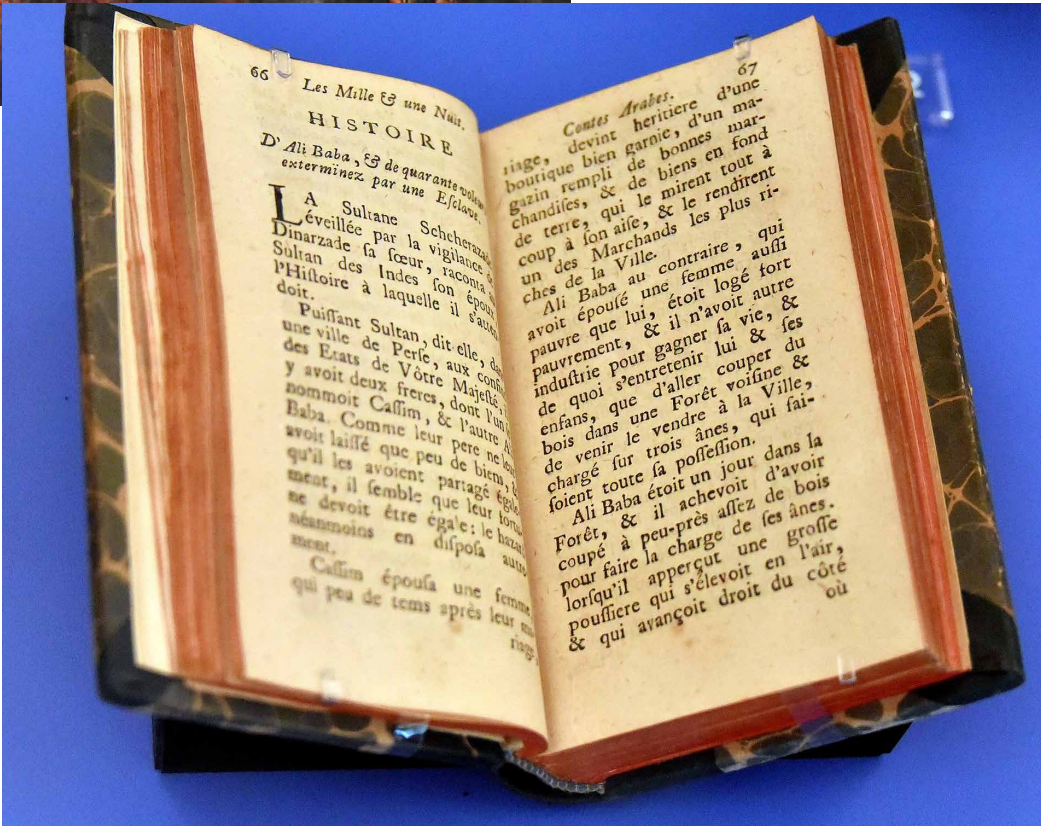 66 Les Mille & une Nuit.
HISTOIRE
D'Ali Baba, & de quarante
exterminez par une Eſclave.
LA Sultane
éveillée par la vigilance
Dinarzade ſa ſœur, raconta
Sultan des Indes ſon époux
l'Hiſtoire à laquelle il
doit.
Puiſſant Sultan, dit-elle,
une ville de Perſe, aux
des Etats de Vôtre Majeſté,
y avoit deux freres, dont l'un
nommoit Caſſim, & l'autre
Baba. Comme leur pere ne
avoit laiſſé que peu de biens,
qu'il les avoient partagé
ment, il ſemble que leur
ne devoit être égale: le
néanmoins en diſpoſa
ment.
Caſſim épouſa une femme
qui peu de tems après leur
67
Contes Arabes.
riage, devint heritiere d'une
boutique bien garnie, d'un ma-
gazin rempli de bonnes mar-
chandiſes, & de biens en fond
de terre, qui le mirent tout à
coup à ſon aiſe, & le rendirent
un des Marchands les plus ri-
ches de la Ville.
Ali Baba au contraire, qui
avoit épouſé une femme auſſi
pauvre que lui, étoit logé fort
pauvrement, & il n'avoit autre
induſtrie pour gagner ſa vie, &
de quoi s'entretenir lui & ſes
enfans, que d'aller couper du
bois dans une Forêt voiſine &
de venir le vendre à la Ville,
chargé ſur trois ânes, qui fai-
ſoient toute ſa poſſeſſion.
Ali Baba étoit un jour dans la
Forêt, & il achevoit d'avoir
coupé à peu-près aſſez de bois
pour faire la charge de ſes ânes.
lorſqu'il apperçut une groſſe
pouſſiere qui s'élevoit en l'air,
& qui avançoit droit du côté
où